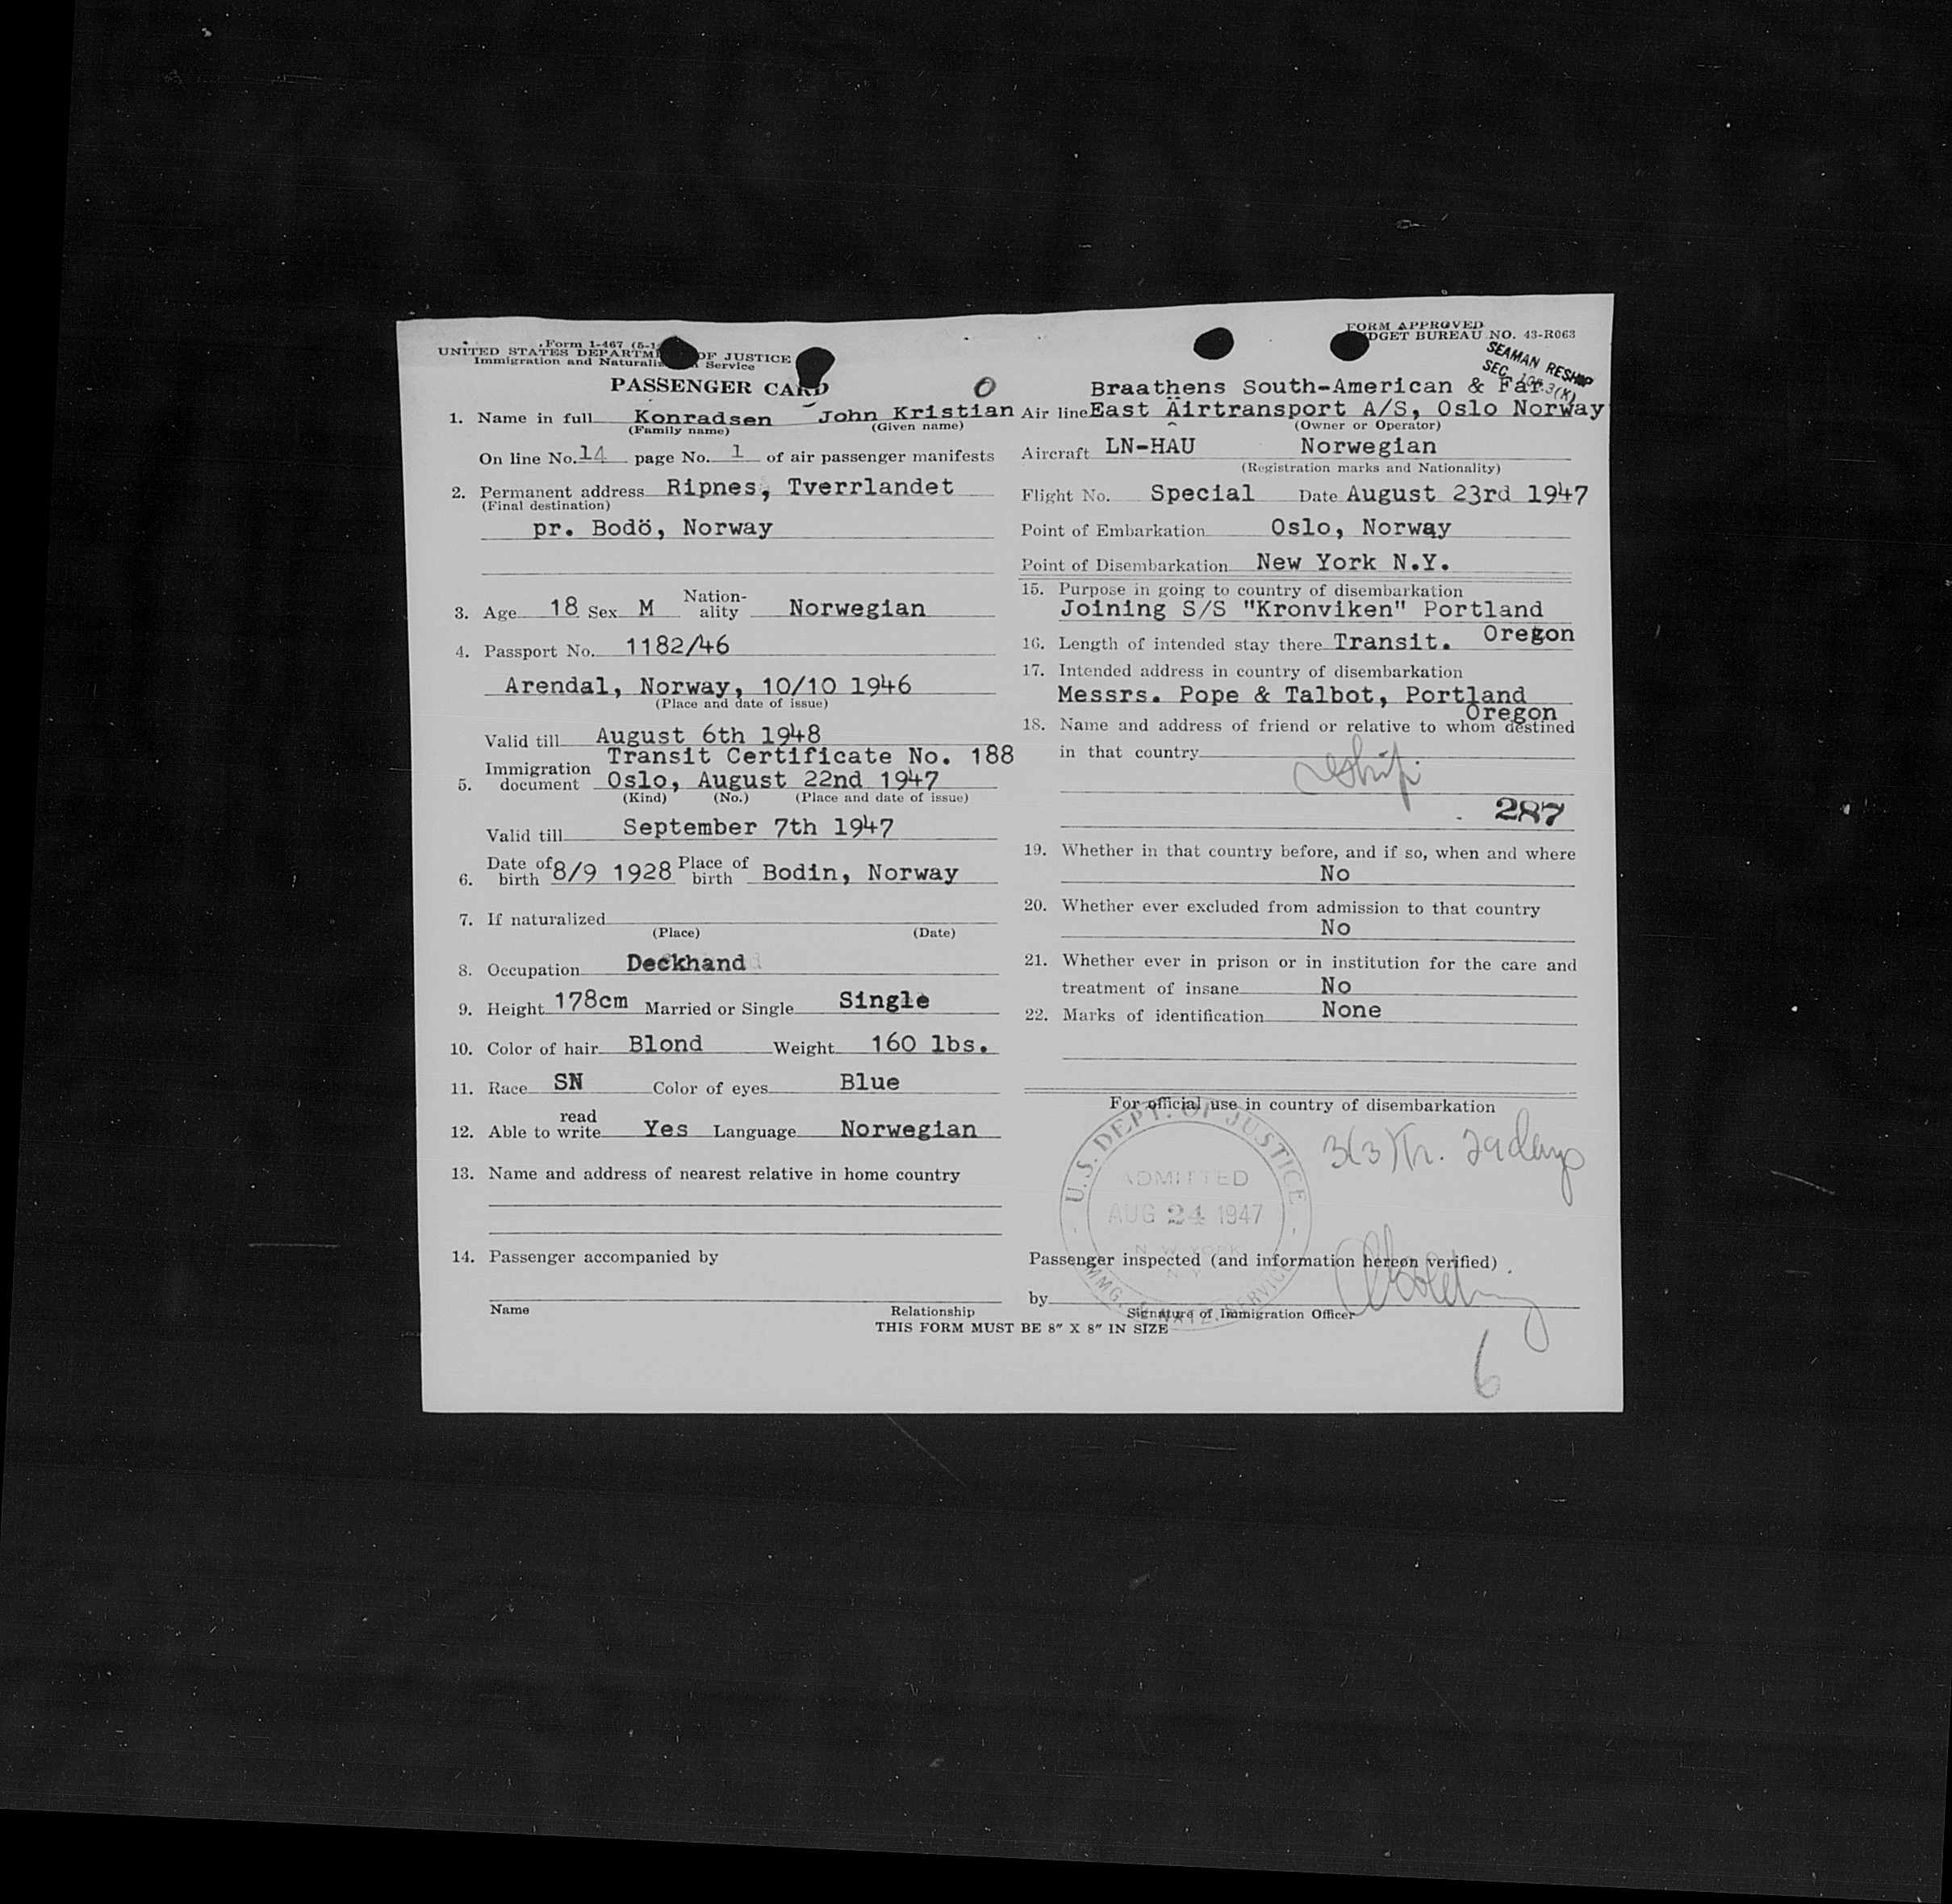 Form 1-467 (5-1
UNITED STATES DEPARTM OF JUSTICE
Immigration and Naturaliz Service
PASSENGER CARD
0
1. Name in full Konradsen John Kristian
(Family name) (Given name)
On line No. 14 page No. 1 of air passenger manifests
2. Permanent address Ripnes, Tverrlandet
(Final destination)
pr. Bodö, Norway
3. Age 18 Sex M Nation-ality Norwegian
4. Passport No. 1182/46
Arendal, Norway, 10/10 1946
(Place and date of issue)
Valid till August 6th 1948
Transit Certificate No. 188
5. Immigration document Oslo, August 22nd 1947
(Kind) (No.) (Place and date of issue)
Valid till September 7th 1947
6. Date of birth 8/9 1928 Place of birth Bodin, Norway
7. If naturalized
(Place) (Date)
8. Occupation Deckhand
9. Height 178cm Married or Single Single
10. Color of hair Blond Weight 160 lbs.
11. Race SN Color of eyes Blue
12. Able to read write Yes Language Norwegian
13. Name and address of nearest relative in home country
14. Passenger accompanied by
Name Relationship
FORM APPROVED
DGET BUREAU NO. 43-R063
SEAMAN RESHIP
SEC. 3(K)
Braathens South-American & Far
Air line East Airtransport A/S, Oslo Norway
(Owner or Operator)
Aircraft LN-HAU Norwegian
(Registration marks and Nationality)
Flight No. Special Date August 23rd 1947
Point of Embarkation Oslo, Norway
Point of Disembarkation New York N.Y.
15. Purpose in going to country of disembarkation
Joining S/S "Kronviken" Portland
Oregon
16. Length of intended stay there Transit.
17. Intended address in country of disembarkation
Messrs. Pope & Talbot, Portland
Oregon
18. Name and address of friend or relative to whom destined
in that country
reship
287
19. Whether in that country before, and if so, when and where
No
20. Whether ever excluded from admission to that country
No
21. Whether ever in prison or in institution for the care and
treatment of insane No
22. Marks of identification None
For official use in country of disembarkation
3(3) Tr. 29 days
U.S. DEPT. OF JUSTICE
ADMITTED
AUG 24 1947
IMMG. & NATZ. SERVICE
Passenger inspected (and information hereon verified)
by
Signature of Immigration Officer
THIS FORM MUST BE 8" X 8" IN SIZE
6